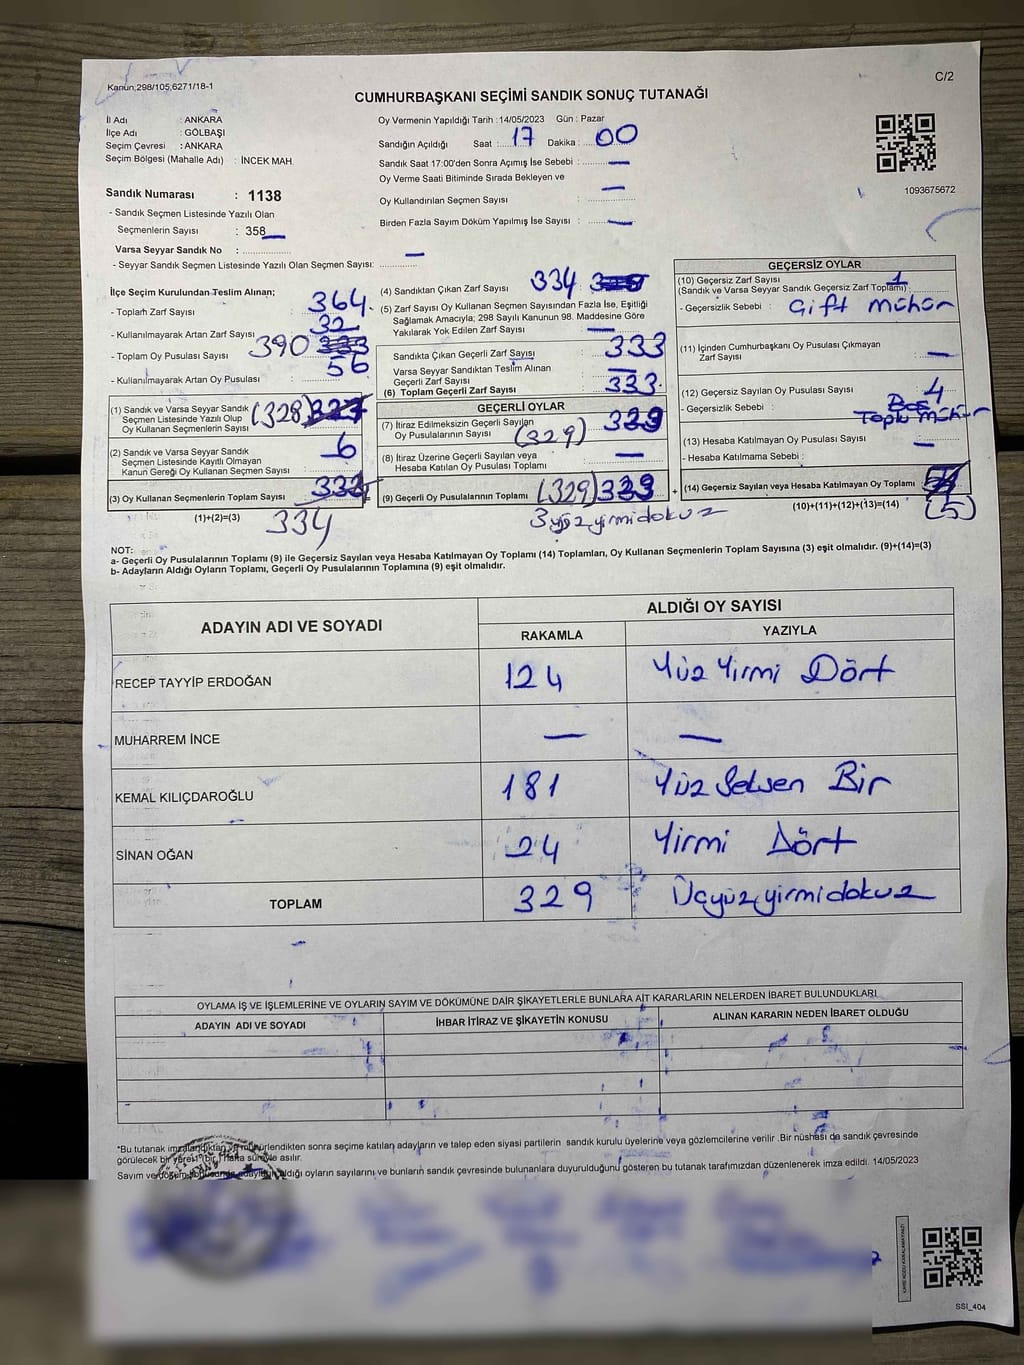 Kanun:298/105,6271/18-1
C/2
CUMHURBAŞKANI SEÇİMİ SANDIK SONUÇ TUTANAĞI
İl Adı : ANKARA
İlçe Adı : GÖLBAŞI
Seçim Çevresi : ANKARA
Seçim Bölgesi (Mahalle Adı) : İNCEK MAH.
Sandık Numarası : 1138
- Sandık Seçmen Listesinde Yazılı Olan
Seçmenlerin Sayısı : 358
Varsa Seyyar Sandık No :
- Seyyar Sandık Seçmen Listesinde Yazılı Olan Seçmen Sayısı: —
Oy Vermenin Yapıldığı Tarih : 14/05/2023 Gün : Pazar
Sandığın Açıldığı Saat : 17 Dakika : 00
Sandık Saat 17:00'den Sonra Açımış İse Sebebi : —
Oy Verme Saati Bitiminde Sırada Bekleyen ve
Oy Kullandırılan Seçmen Sayısı : —
Birden Fazla Sayım Döküm Yapılmış İse Sayısı : —
1093675672
İlçe Seçim Kurulundan Teslim Alınan;
- Toplam Zarf Sayısı : 364
- Kullanılmayarak Artan Zarf Sayısı : 32
- Toplam Oy Pusulası Sayısı : 390
- Kullanılmayarak Artan Oy Pusulası : 56
(1) Sandık ve Varsa Seyyar Sandık
Seçmen Listesinde Yazılı Olup
Oy Kullanan Seçmenlerin Sayısı (328) 327
(2) Sandık ve Varsa Seyyar Sandık
Seçmen Listesinde Kayıtlı Olmayan
Kanun Gereği Oy Kullanan Seçmen Sayısı : 6
(3) Oy Kullanan Seçmenlerin Toplam Sayısı
(1)+(2)=(3) 334
(4) Sandıktan Çıkan Zarf Sayısı : 334
(5) Zarf Sayısı Oy Kullanan Seçmen Sayısından Fazla İse, Eşitliği
Sağlamak Amacıyla; 298 Sayılı Kanunun 98. Maddesine Göre
Yakılarak Yok Edilen Zarf Sayısı : —
Sandıkta Çıkan Geçerli Zarf Sayısı : 333
Varsa Seyyar Sandıktan Teslim Alınan
Geçerli Zarf Sayısı : —
(6) Toplam Geçerli Zarf Sayısı : 333
GEÇERLİ OYLAR
(7) İtiraz Edilmeksizin Geçerli Sayılan
Oy Pusulalarının Sayısı (329) 329
(8) İtiraz Üzerine Geçerli Sayılan veya
Hesaba Katılan Oy Pusulası Toplamı : —
= (9) Geçerli Oy Pusulalarının Toplamı (329)
3yüzyirmidokuz
GEÇERSİZ OYLAR
(10) Geçersiz Zarf Sayısı : 1
(Sandık ve Varsa Seyyar Sandık Geçersiz Zarf Toplamı)
- Geçersizlik Sebebi : Çift Mühür
(11) İçinden Cumhurbaşkanı Oy Pusulası Çıkmayan
Zarf Sayısı : —
(12) Geçersiz Sayılan Oy Pusulası Sayısı : 4
- Geçersizlik Sebebi : Boş
Toplu Mühür
(13) Hesaba Katılmayan Oy Pusulası Sayısı : —
- Hesaba Katılmama Sebebi :
+ (14) Geçersiz Sayılan veya Hesaba Katılmayan Oy Toplamı
(10)+(11)+(12)+(13)=(14) (5)
NOT:
a- Geçerli Oy Pusulalarının Toplamı (9) ile Geçersiz Sayılan veya Hesaba Katılmayan Oy Toplamı (14) Toplamları, Oy Kullanan Seçmenlerin Toplam Sayısına (3) eşit olmalıdır. (9)+(14)=(3)
b- Adayların Aldığı Oyların Toplamı, Geçerli Oy Pusulalarının Toplamına (9) eşit olmalıdır.
ADAYIN ADI VE SOYADI ALDIĞI OY SAYISI
RAKAMLA YAZIYLA
RECEP TAYYİP ERDOĞAN 124 Yüz Yirmi Dört
MUHARREM İNCE — —
KEMAL KILIÇDAROĞLU 181 Yüz Seksen Bir
SİNAN OĞAN 24 Yirmi Dört
TOPLAM 329 Üçyüzyirmidokuz
OYLAMA İŞ VE İŞLEMLERİNE VE OYLARIN SAYIM VE DÖKÜMÜNE DAİR ŞİKAYETLERLE BUNLARA AİT KARARLARIN NELERDEN İBARET BULUNDUKLARI
ADAYIN ADI VE SOYADI İHBAR İTİRAZ VE ŞİKAYETİN KONUSU ALINAN KARARIN NEDEN İBARET OLDUĞU
*Bu tutanak imzalandıktan ve mühürlendikten sonra seçime katılan adayların ve talep eden siyasi partilerin sandık kurulu üyelerine veya gözlemcilerine verilir .Bir nüshası da sandık çevresinde
görülecek bir yere 1 (bir ) hafta süreyle asılır.
Sayım ve döküm sonucunda adayların aldığı oyların sayılarını ve bunların sandık çevresinde bulunanlara duyurulduğunu gösteren bu tutanak tarafımızdan düzenlenerek imza edildi. 14/05/2023
SSI_404